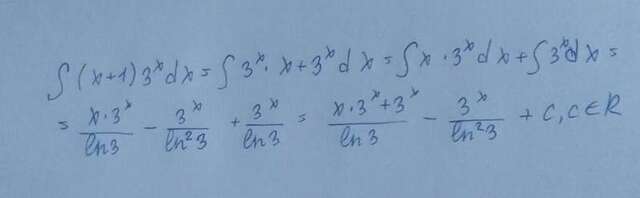 ∫(x+1)3^x dx = ∫3^x · x + 3^x dx = ∫x · 3^x dx + ∫3^x dx =
= x·3^x/ln3 - 3^x/ln²3 + 3^x/ln3 = (x·3^x+3^x)/ln3 - 3^x/ln²3 + C, C∈R